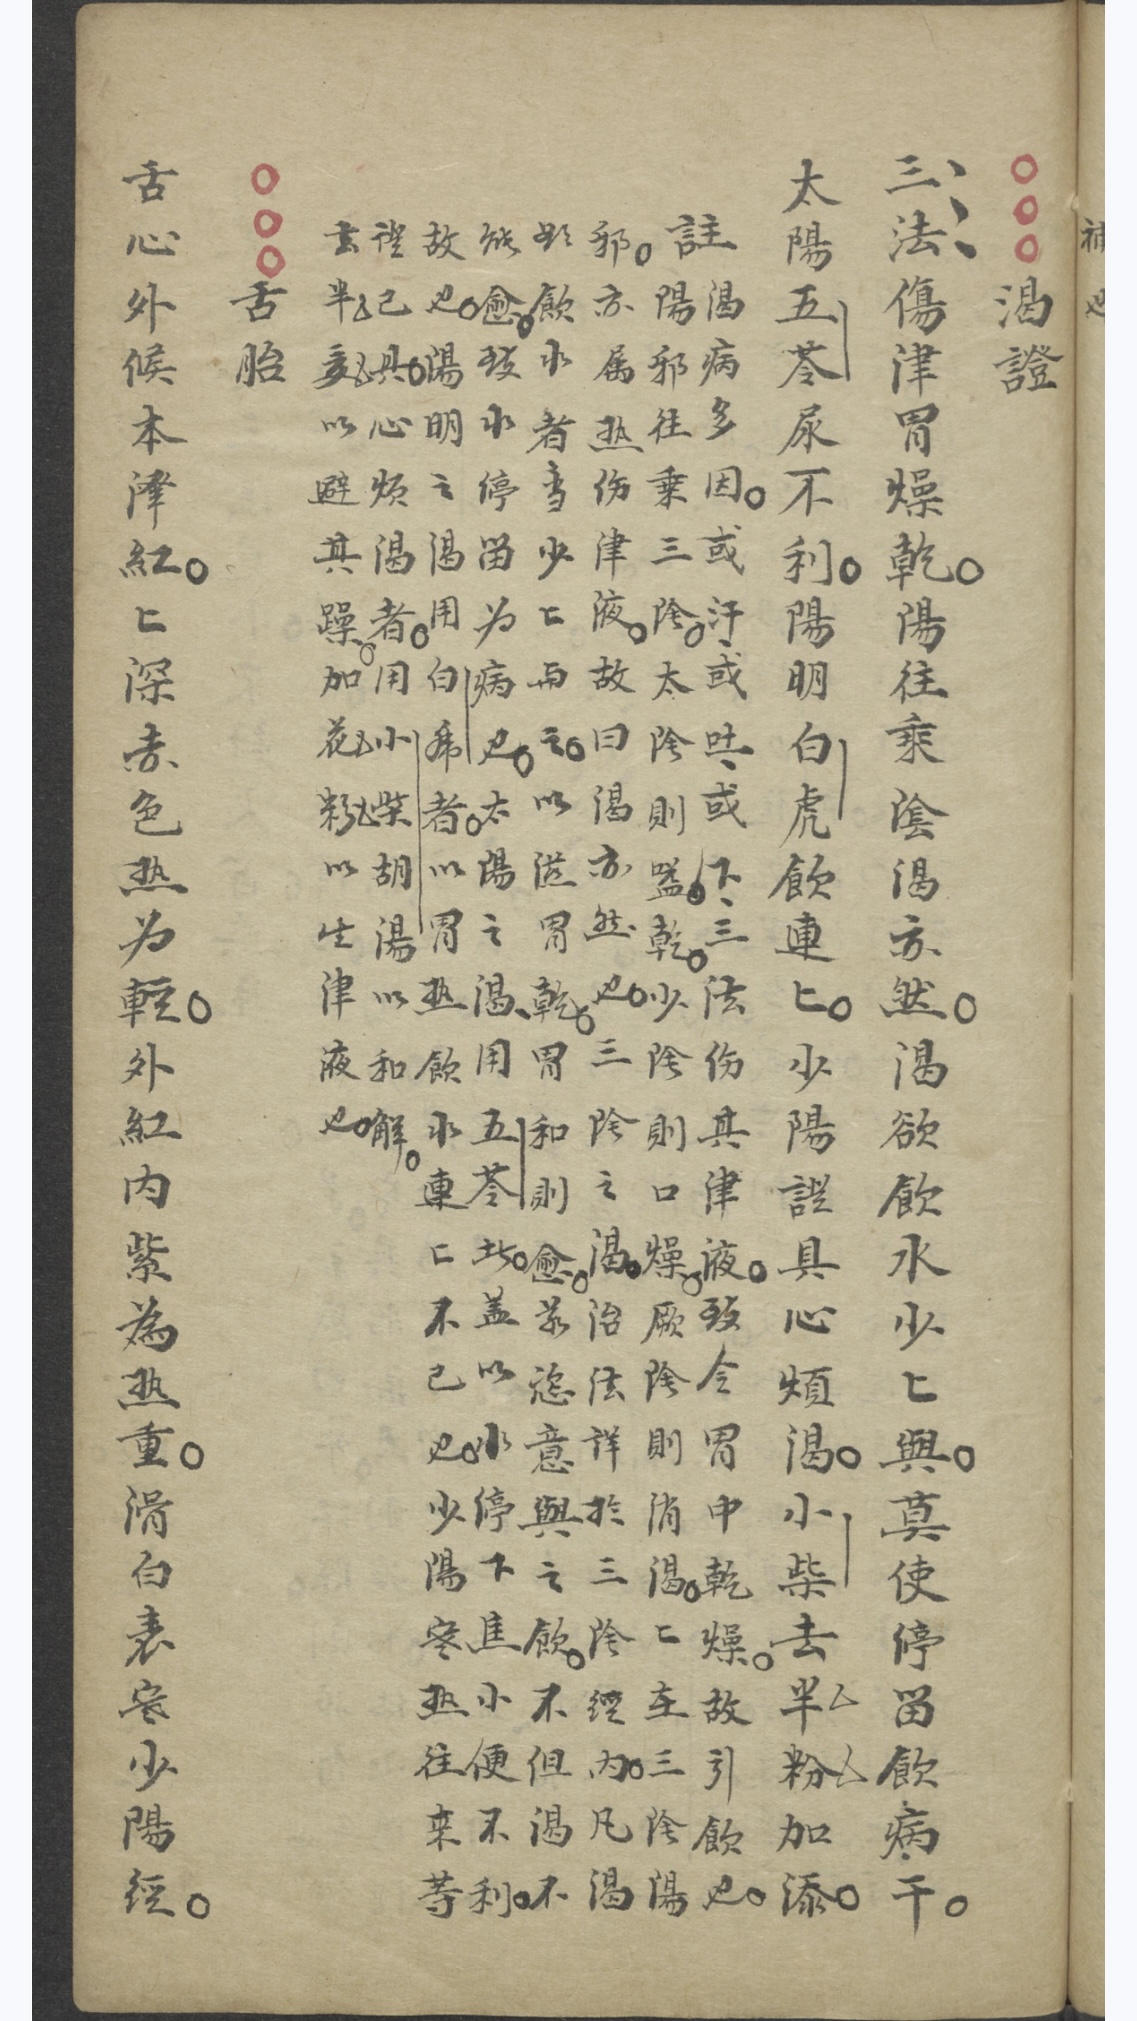 補也
渴證
三法傷津胃燥乾陽往乘陰渴亦然渴欲飲水少〻與莫使停留飲病干
太陽五苓尿不利陽明白虎飲連〻少陽證具心煩渴小柴去半粉加添
註
渴病多因或汗或吐或下三法伤其津液致令胃中乾燥故引飲也
陽邪往乗三陰太陰則嗌乾少陰則口燥厥陰則消渴〻在三陰陽
邪亦属热伤津液故曰渴亦然也三陰之渴治法詳於三陰經内凡渴
欲飲水者當少〻与之以滋胃乾胃和則愈若恣意與之飲不但渴不
能愈致水停留为病也太陽之渴用五苓此盖以水停下焦小便不利
故也陽明之渴用白虎者以胃热飲水連〻不已也少陽寒热往来等
證已具心烦渴者用小柴胡湯以和解
去半夏以避其躁加花粉以生津液也
舌胎
舌心外候本澤紅〻深赤色热为輕外紅内紫為热重滑白表寒少陽經